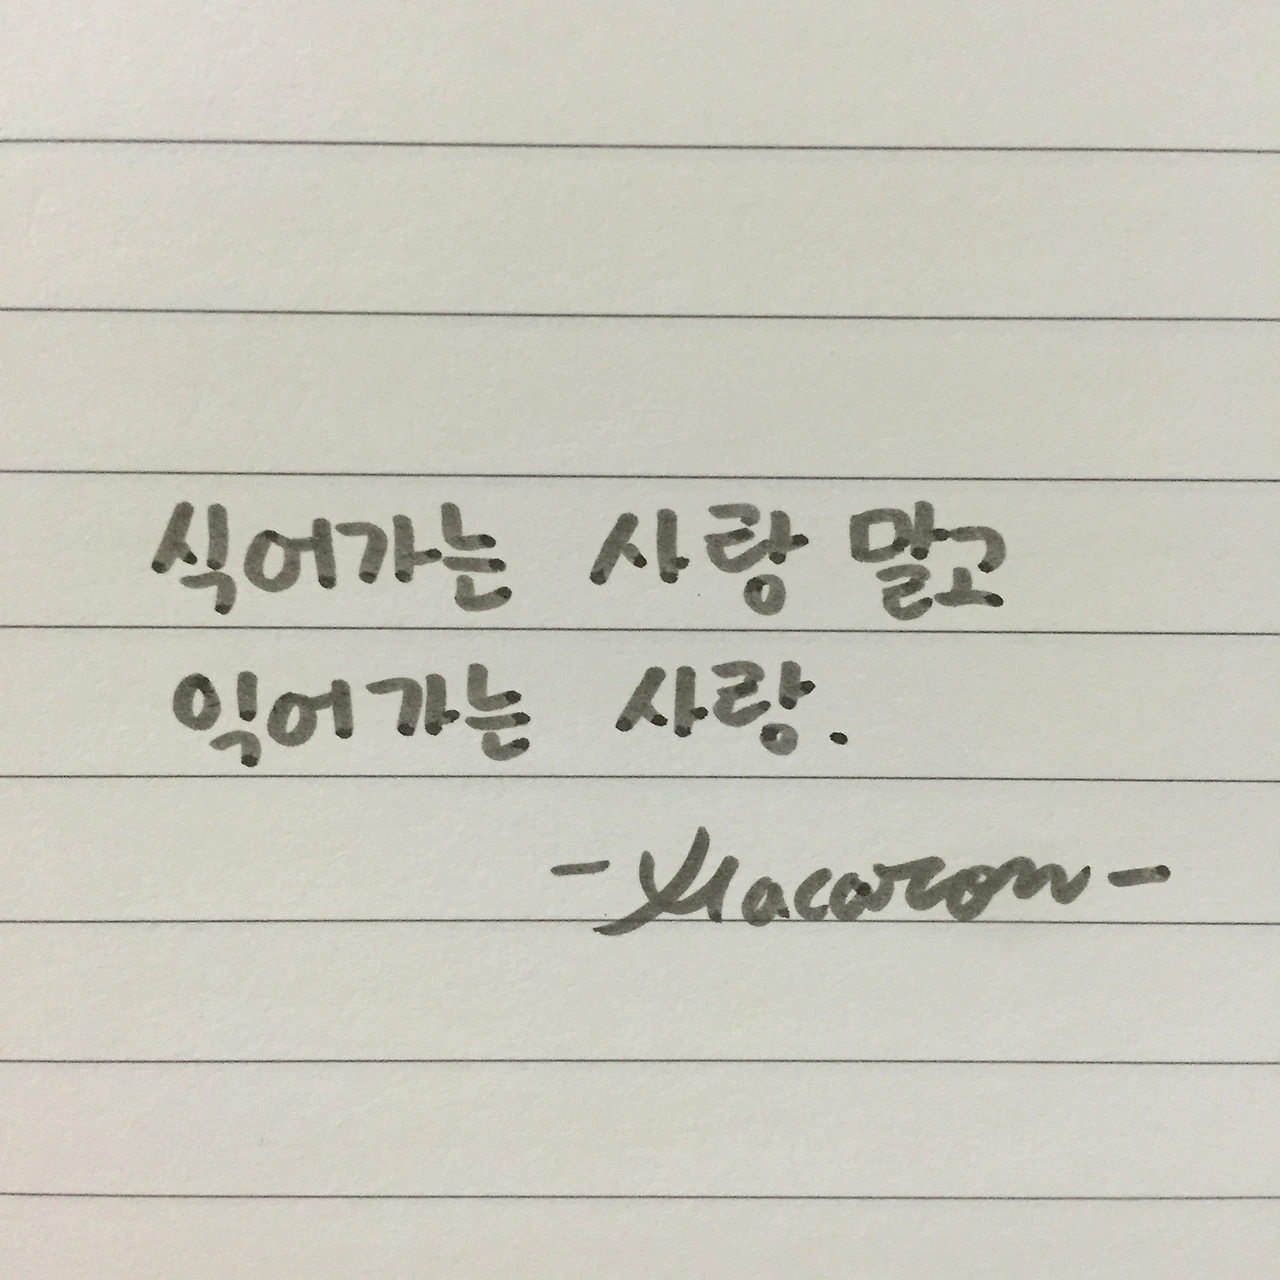 식어가는 사랑 말고
익어가는 사랑.
-Macaron-